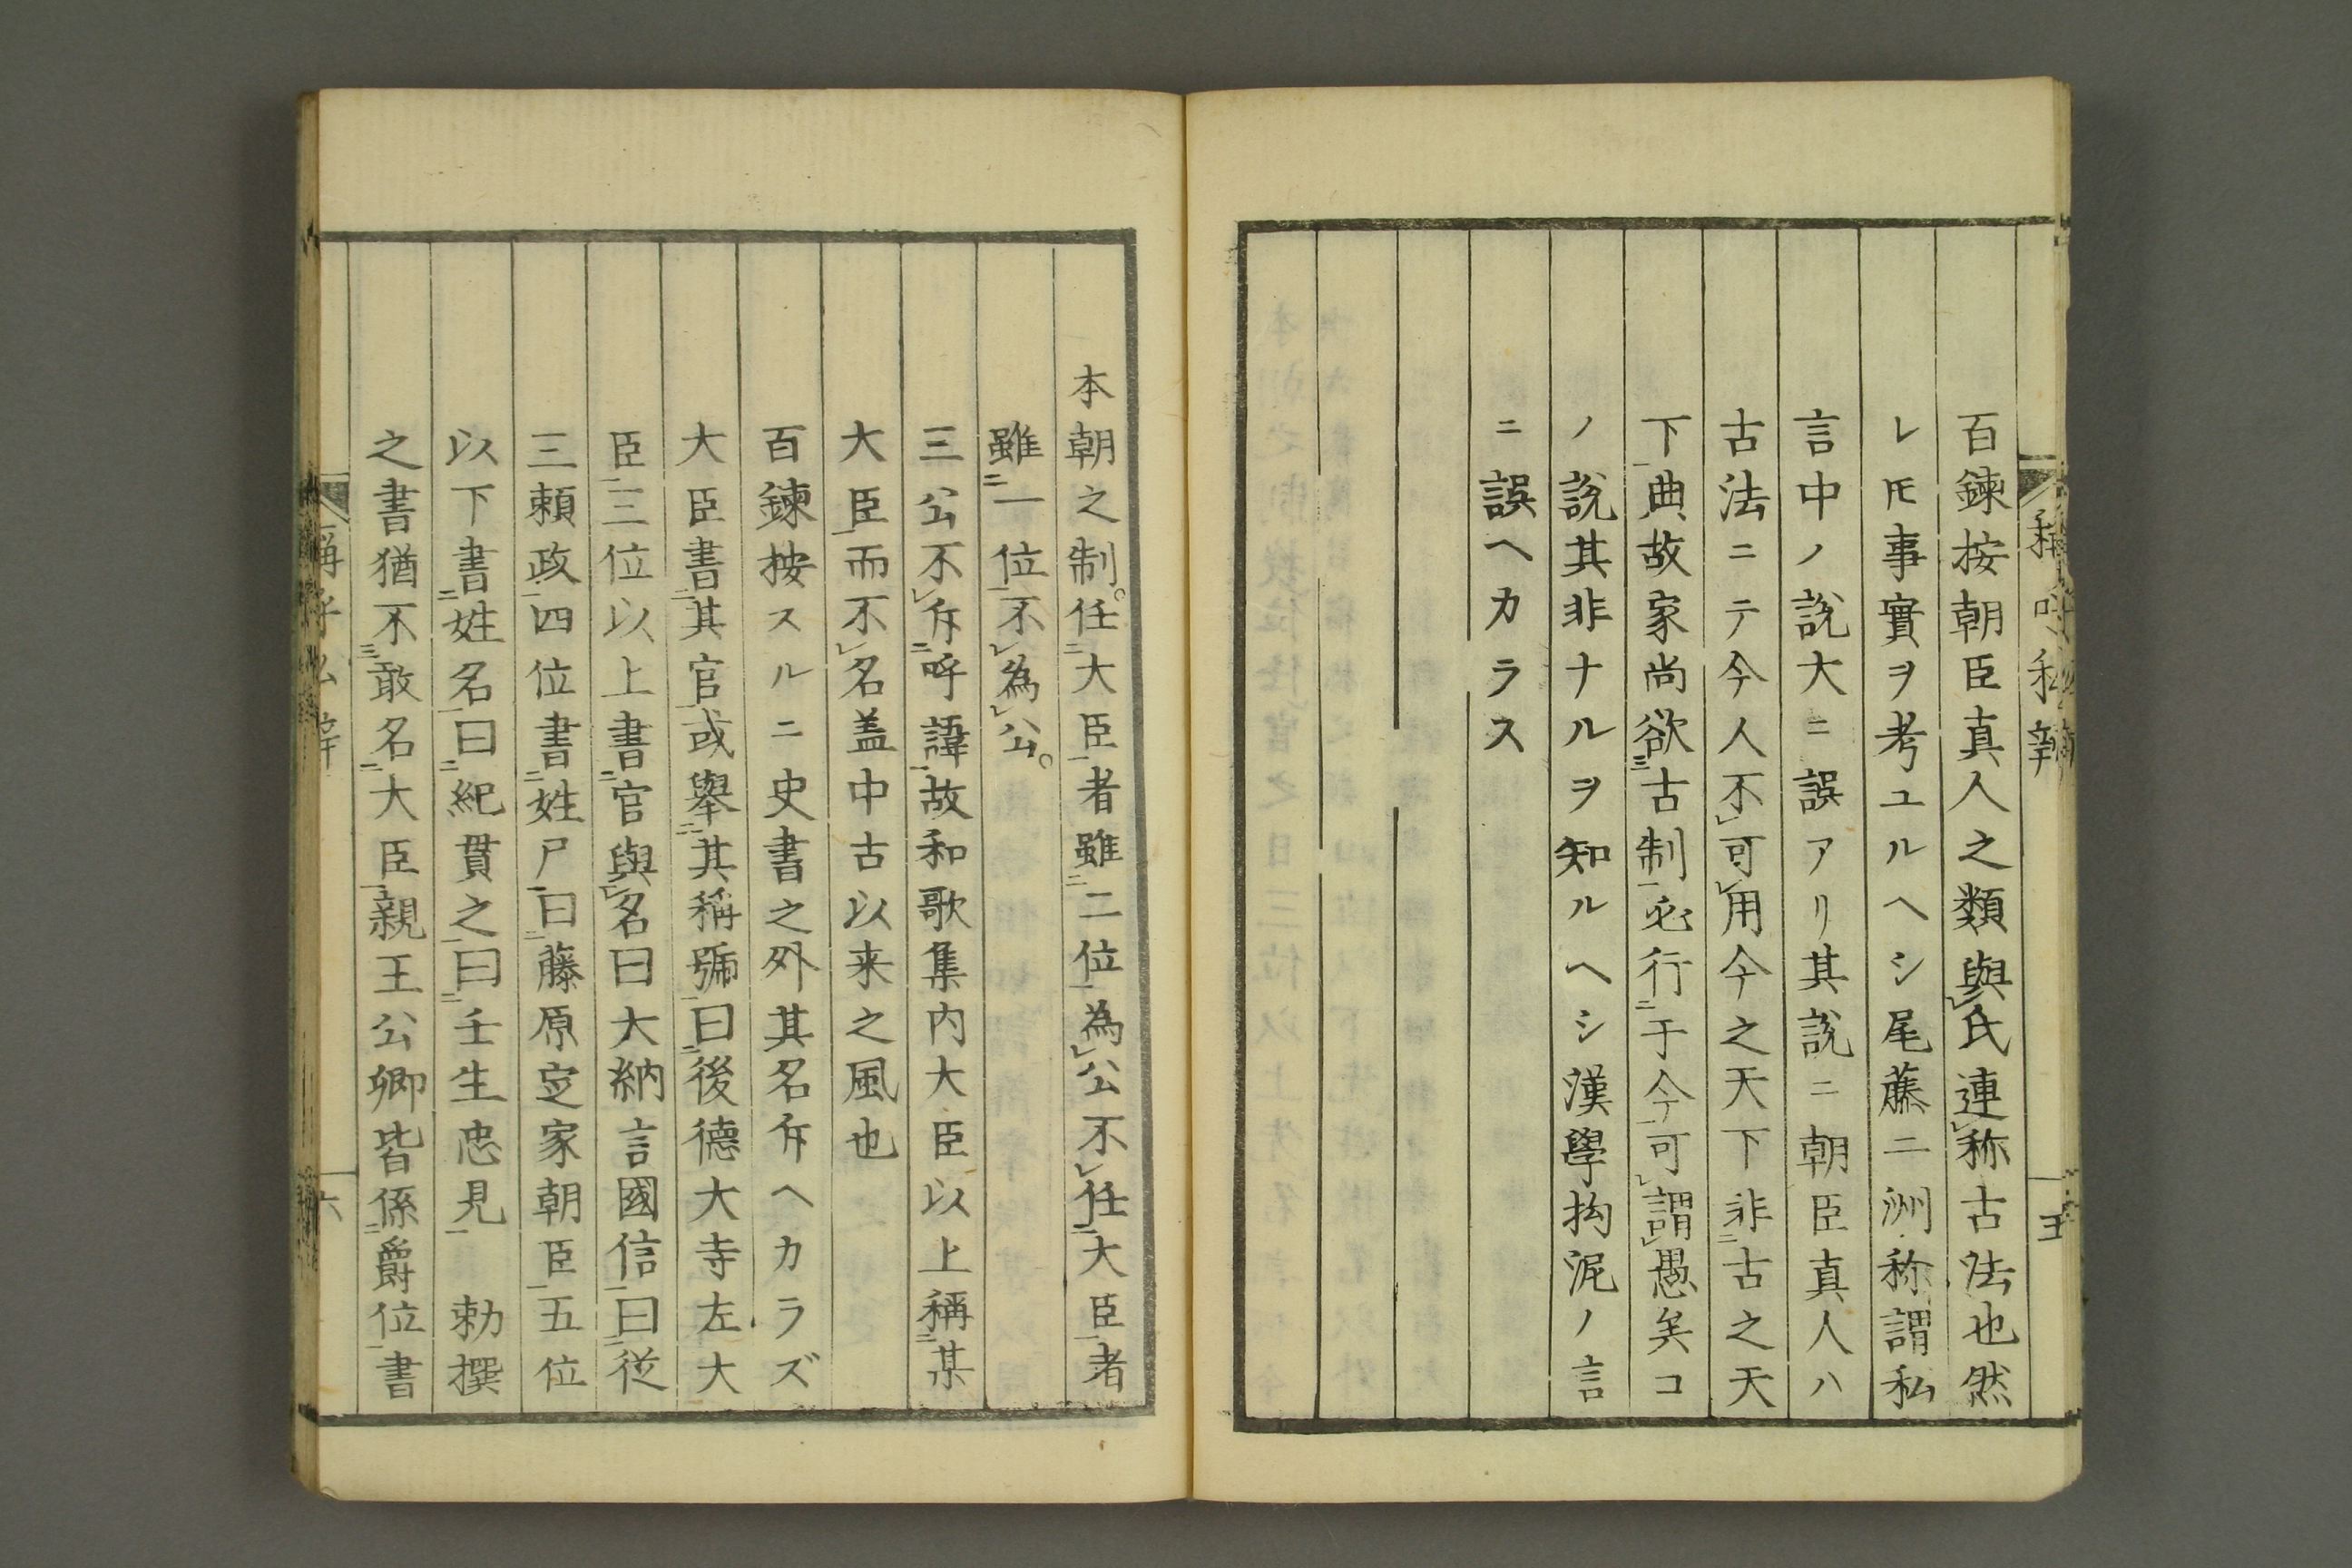 百鍊按朝臣真人之類與㆑氏連称古法也然
レ𪜈事實ヲ考ユルヘシ尾藤二洲称謂私
言中ノ説大ニ誤アリ其説ニ朝臣真人ハ
古法ニテ今人不㆑可㆑用今之天下非㆓古之天
下㆒典故家尚欲㆔古制㆒必行㆓于今㆒可㆑謂㆑愚矣コ
ノ説其非ナルヲ知ルヘシ漢學拘泥ノ言
ニ誤ヘカラス
本朝之制。任㆓大臣㆒者雖㆓二位㆒為㆑公不㆑任㆓大臣㆒者
雖㆓一位㆒不㆑為㆑公。
三公不㆑斥㆓呼諱㆒故和歌集内大臣以上稱㆓某
大臣㆒而不㆑名盖中古以来之風也
百鍊按スルニ史書之外其名斥ヘカラズ
大臣書㆓其官㆒或舉㆓其稱號㆒曰㆓後德大寺左大
臣㆒三位以上書㆓官與㆑名曰大納言國信㆒曰㆓從
三頼政㆒四位書㆓姓尸㆒曰㆓藤原定家朝臣㆒五位
以下書㆓姓名㆒曰㆓紀貫之㆒曰㆓壬生忠見㆒　勅撰
之書猶不㆔敢名㆓大臣㆒親王公卿皆係㆓爵位㆒書
称呼私辨
五
六